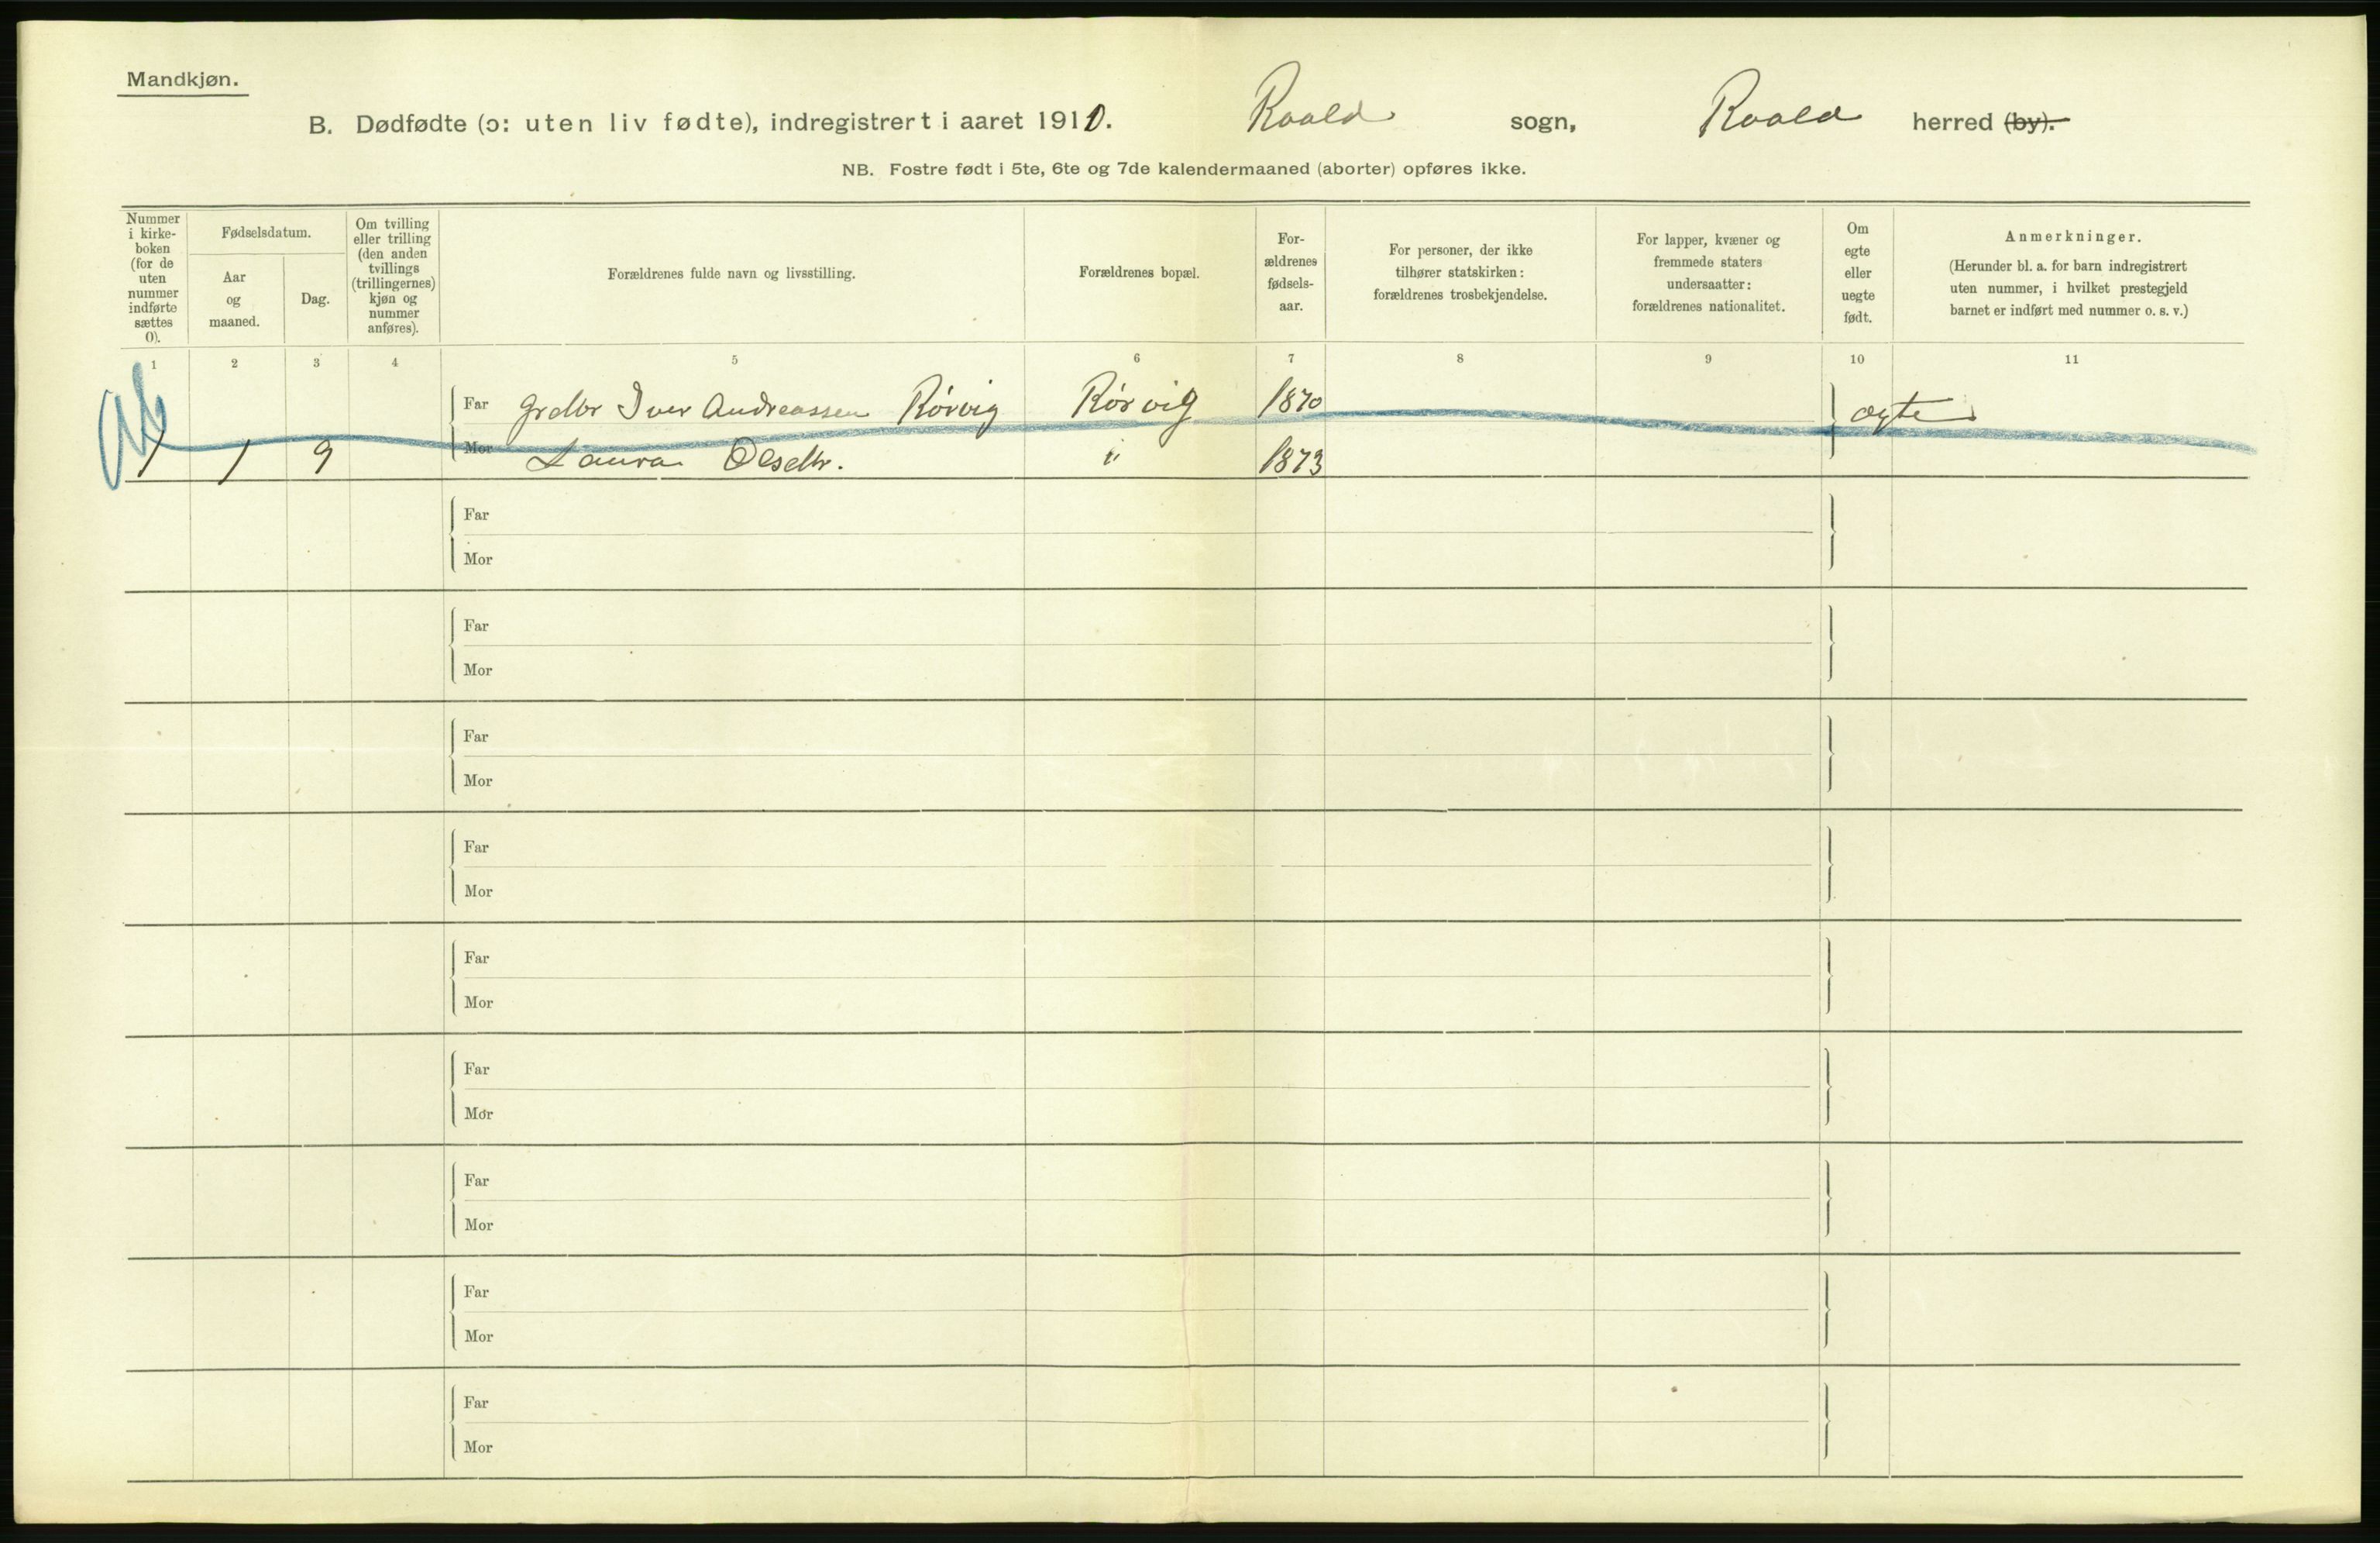 Mandkjøn.
B. Dødfødte (ɔ: uten liv fødte), indregistrert i aaret 1910. Roald sogn, Roald herred (by).
NB. Fostre født i 5te, 6te og 7de kalendermaaned (aborter) opføres ikke.
Nummer
i kirke-
boken
(for de
uten
nummer
indførte
sættes
0).
Fødselsdatum.
Aar
og
maaned.
Dag.
Om tvilling
eller trilling
(den anden
tvillings
(trillingernes)
kjøn og
nummer
anføres).
Forældrenes fulde navn og livsstilling.
Forældrenes bopæl.
For-
ældrenes
fødsels-
aar.
For personer, der ikke
tilhører statskirken:
forældrenes trosbekjendelse.
For lapper, kvæner og
fremmede staters
undersaatter:
forældrenes nationalitet.
Om
egte
eller
uegte
født.
Anmerkninger.
(Herunder bl. a. for barn indregistrert
uten nummer, i hvilket prestegjeld
barnet er indført med nummer o. s. v.)
1 2 3 4 5 6 7 8 9 10 11
Far Grdbr Iver Andreassen Rørvig Rørvig 1870 ægte
1 1 9 Mor Laura Olsdtr. " 1873
Far
Mor
Far
Mor
Far
Mor
Far
Mor
Far
Mor
Far
Mor
Far
Mor
Far
Mor
Far
Mor